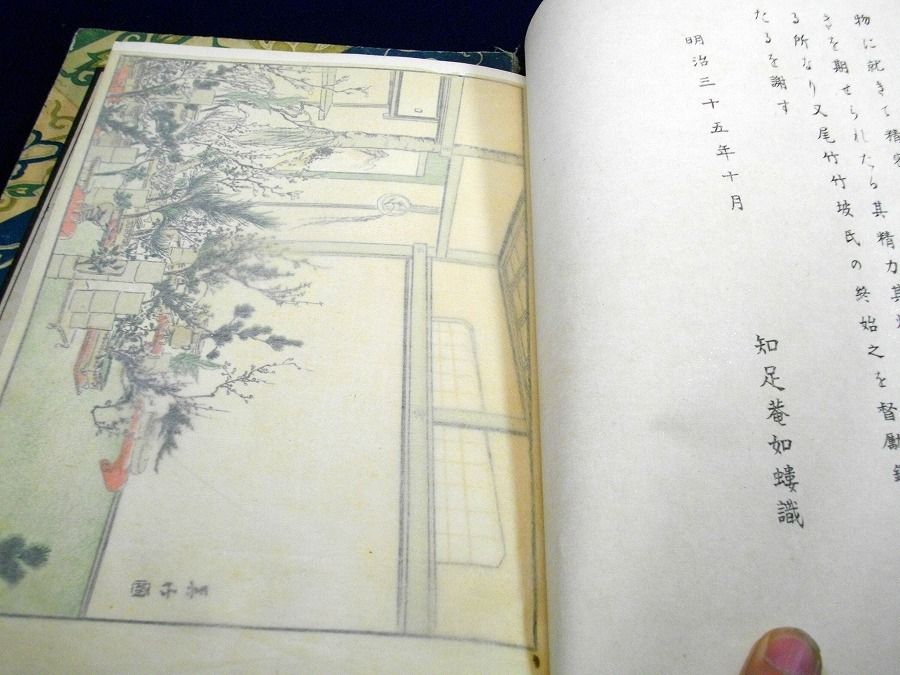 物に就きて精密
きを期せられたる其精力其
る所なり又尾竹竹坡氏の終始之を督励
たるを謝す
明治三十五年十月
知足菴如螻識